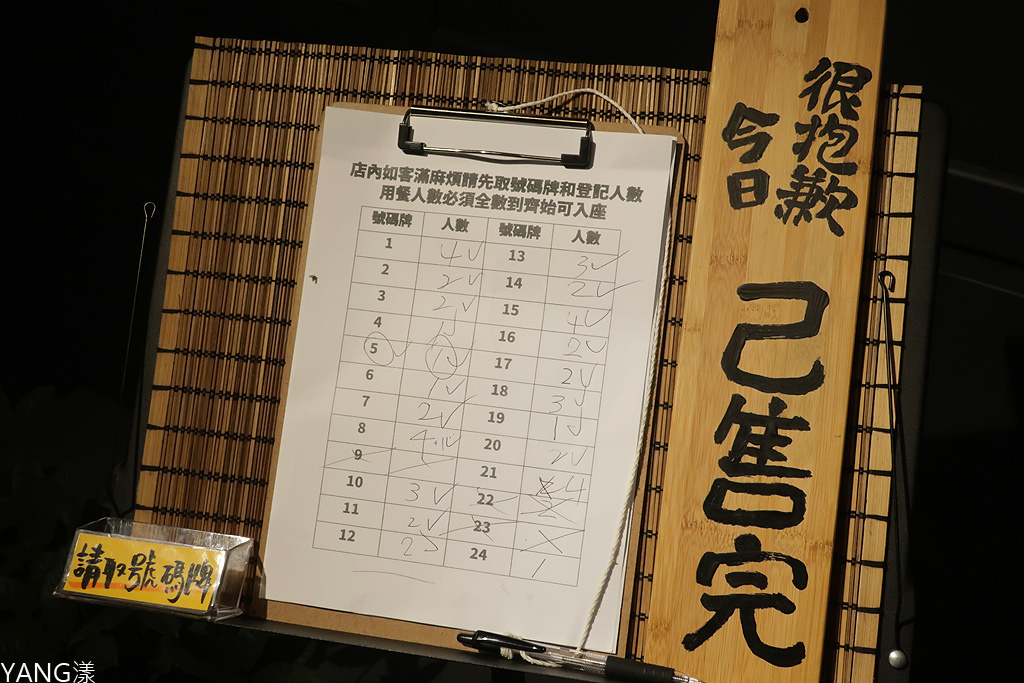 店內如客滿麻煩請先取號碼牌和登記人數
用餐人數必須全數到齊始可入座
號碼牌 人數 號碼牌 人數
1 4✓ 13 3✓
2 2✓ 14 2✓
3 2✓ 15 4✓
4 16 2✓
5 17 2✓
6 1✓ 18 3✓
7 2✓ 19 1✓
8 4+1✓ 20 2✓
9 21 4
10 3✓ 22
11 2✓ 23
12 2✓ 24 1
很抱歉
今日
已售完
請取號碼牌
YANG漾